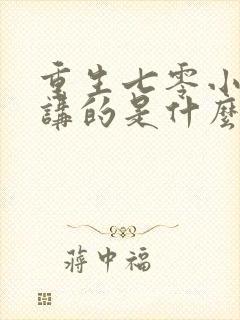 重生七零小
講的是什麼
蔣中福